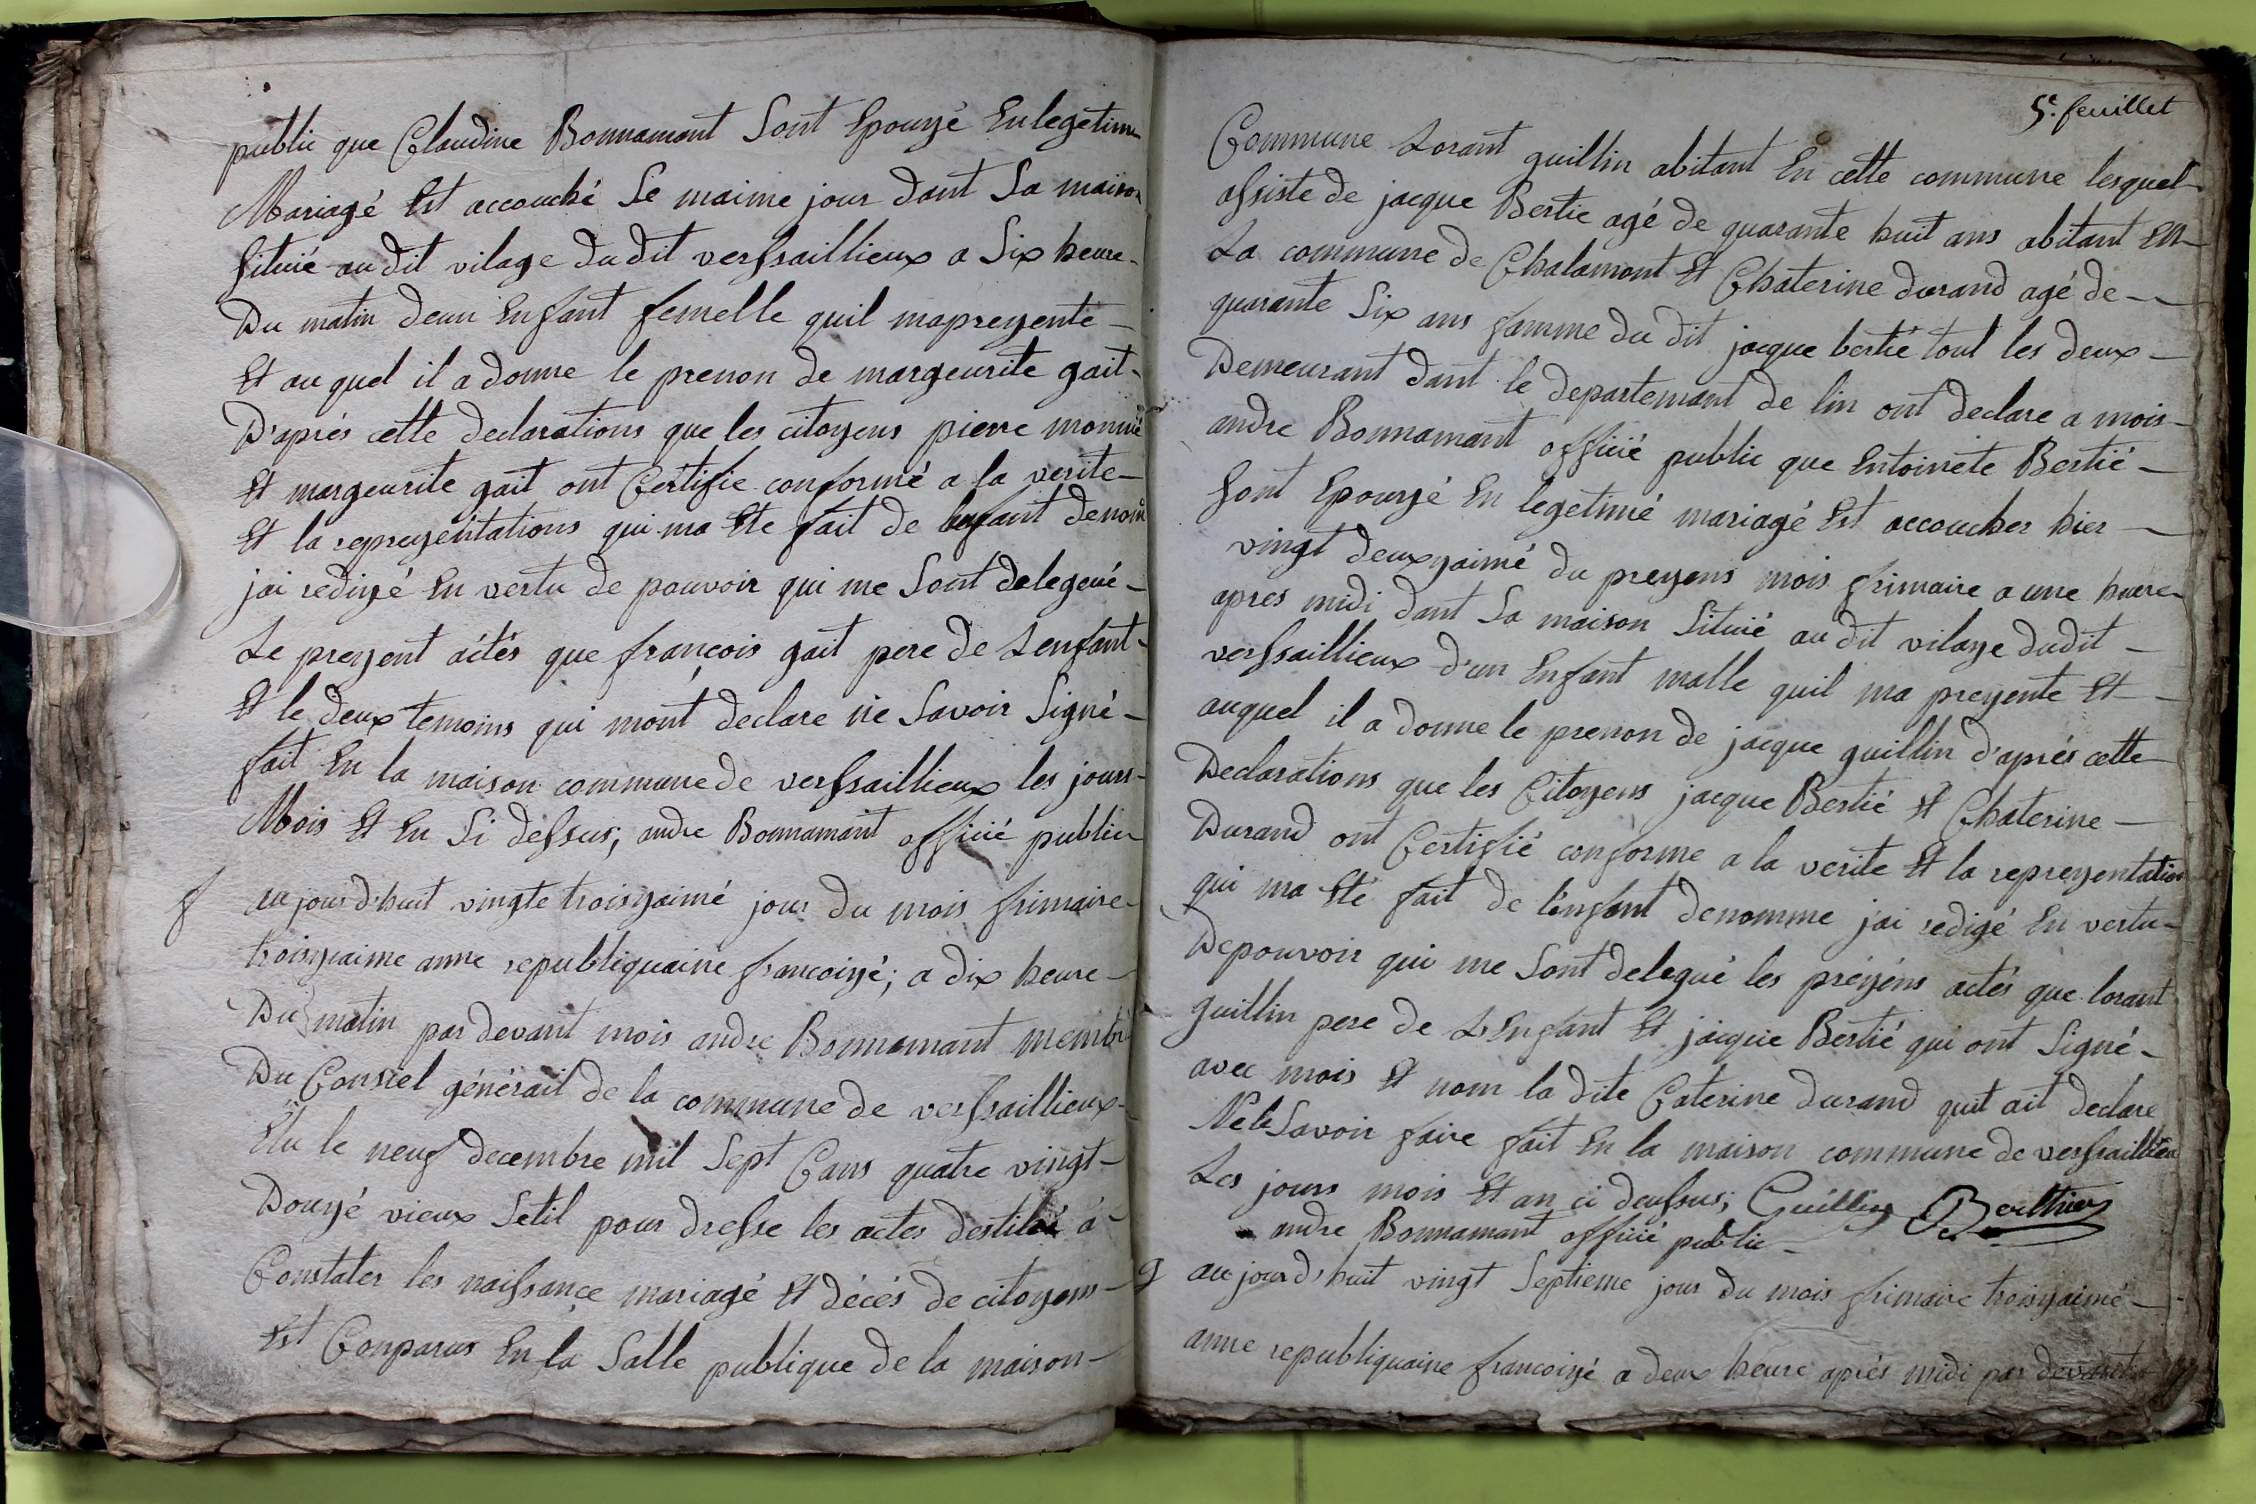 public que Claudine Bonnamant Sont Epouzé En legetime
Mariagé Est accouché Le maime jour dant Sa maison
Situié au dit vilage du dit versailleux a Six heure
Du matin deun Enfant femelle quil mapreyente
Et au quel il a donne le prenon de margeurite gait
D'aprés cette declarations que les citoyens pierre monnié
Et margeurite gait ont Certifie conformé a la verite
Et la repreyentations qui ma Ete fait de lenfant denom
jai redigé En vertu de pouvoir qui me Sont delegué
Le preyent actés que françois gait pere de Lenfant
Et le deux temoins qui mont declare ne Savoir Signé
fait En la maison commune de versaillieux les jours
Mois Et En Si dessus; andre Bonnamant officié public
f au jour d'huit vingte troisyaimé jour du mois frimaire
troisyaime anne republiquaine francoiyé; a dix heure
Du matin par devant mois andre Bonnamant membre
Du Consiel générait de la commune de versaillieux
Elu le neuf decembre mil Sept Cans quatre vingt
Douzé vieux Setil pour dresse les actes destiloé á
Constater les naissançe mariagé Et décés de citoyens
Est Conparus En la Salle publique de la maison
5e. feuillet
Commune Lorant guillin abitant En cette commune lesquel
assiste de jacque Bertie agé de quarante huit ans abitant En
La commune de Chalamont Et Chaterine durand agé de
quarante Six ans famme du dit jacque bertié tout les deux
Demeurant dant le departemant de lin ont declare a mois
andre Bonnamant officié public que Entoinete Bertié
Sont Epouyé En legetimé mariagé Est accoucher hier
vingt deuxyaimé du preyens mois frimaire a une huere
apres midi dant Sa maison Situié au dit vilaye dudit
versaillieux d'un Enfant malle quil ma preyente Et
auquel il a donne le prenon de jacque guillin d'aprés cette
Declarations que les Citoyens jacque Bertié Et Chaterine
Durand ont Certifié conforme a la verite Et la repreyentation
qui ma Eté fait de l'enfant denomme jai redigé En vertu
Depouvoir qui me Sont delegué les préyéns actés que lorant
guillin pere de L'Enfant Et jacque Bertié qui ont Signé
avec mois Et nom la dite Caterine durand quit ait declare
Ne le Savoir faire fait En la maison commune de versaillieu
Les jours mois Et an ci deussus; Guillin Berthier
andre Bonnamant officié public
g au jour d'huit vingt Septieme jour du mois frimaire troisyaimé
anne republiquaine francoiyé a deux heure aprés midi par devant